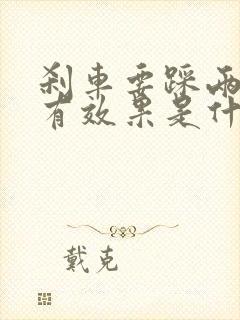 刹車要踩兩
有效果是什
戴克